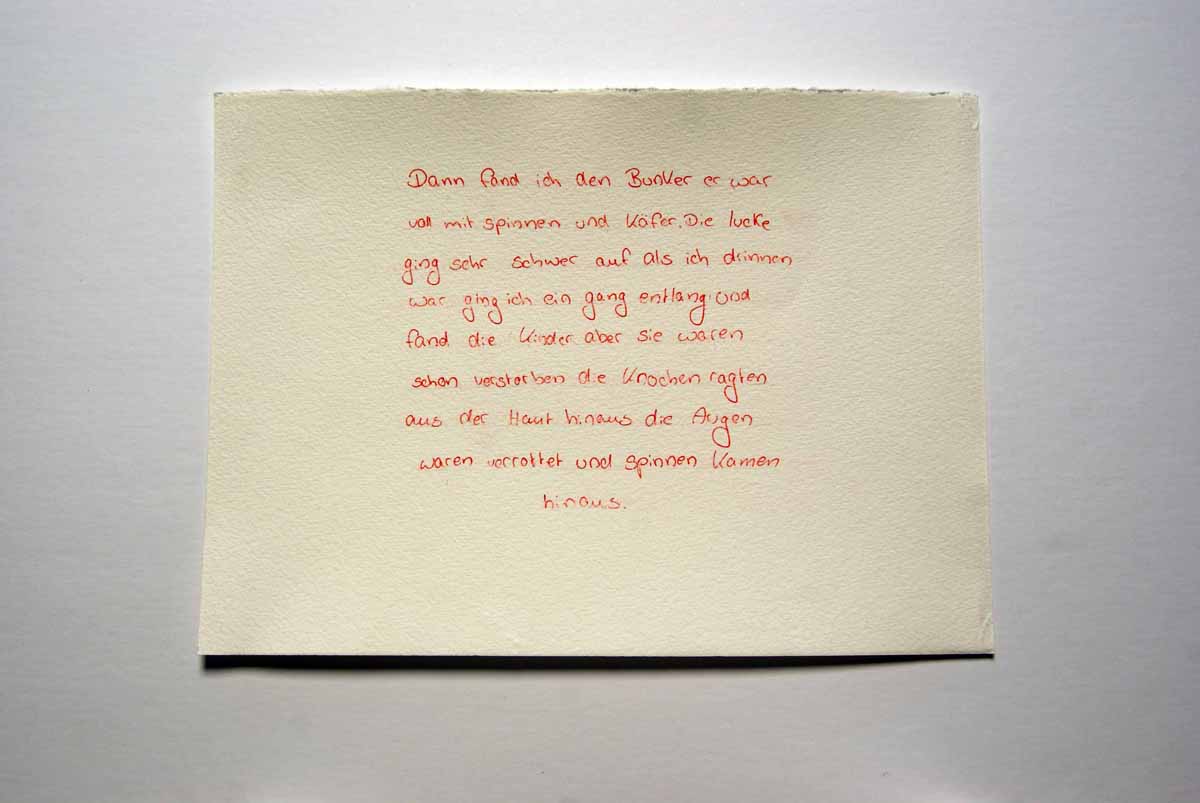 Dann fand ich den Bunker er war
voll mit spinnen und Käfer. Die lucke
ging sehr schwer auf als ich drinnen
war ging ich ein gang entlang und
fand die Kinder aber sie waren
schon verstorben die Knochen ragten
aus der Haut hinaus die Augen
waren verrottet und spinnen kamen
hinaus.